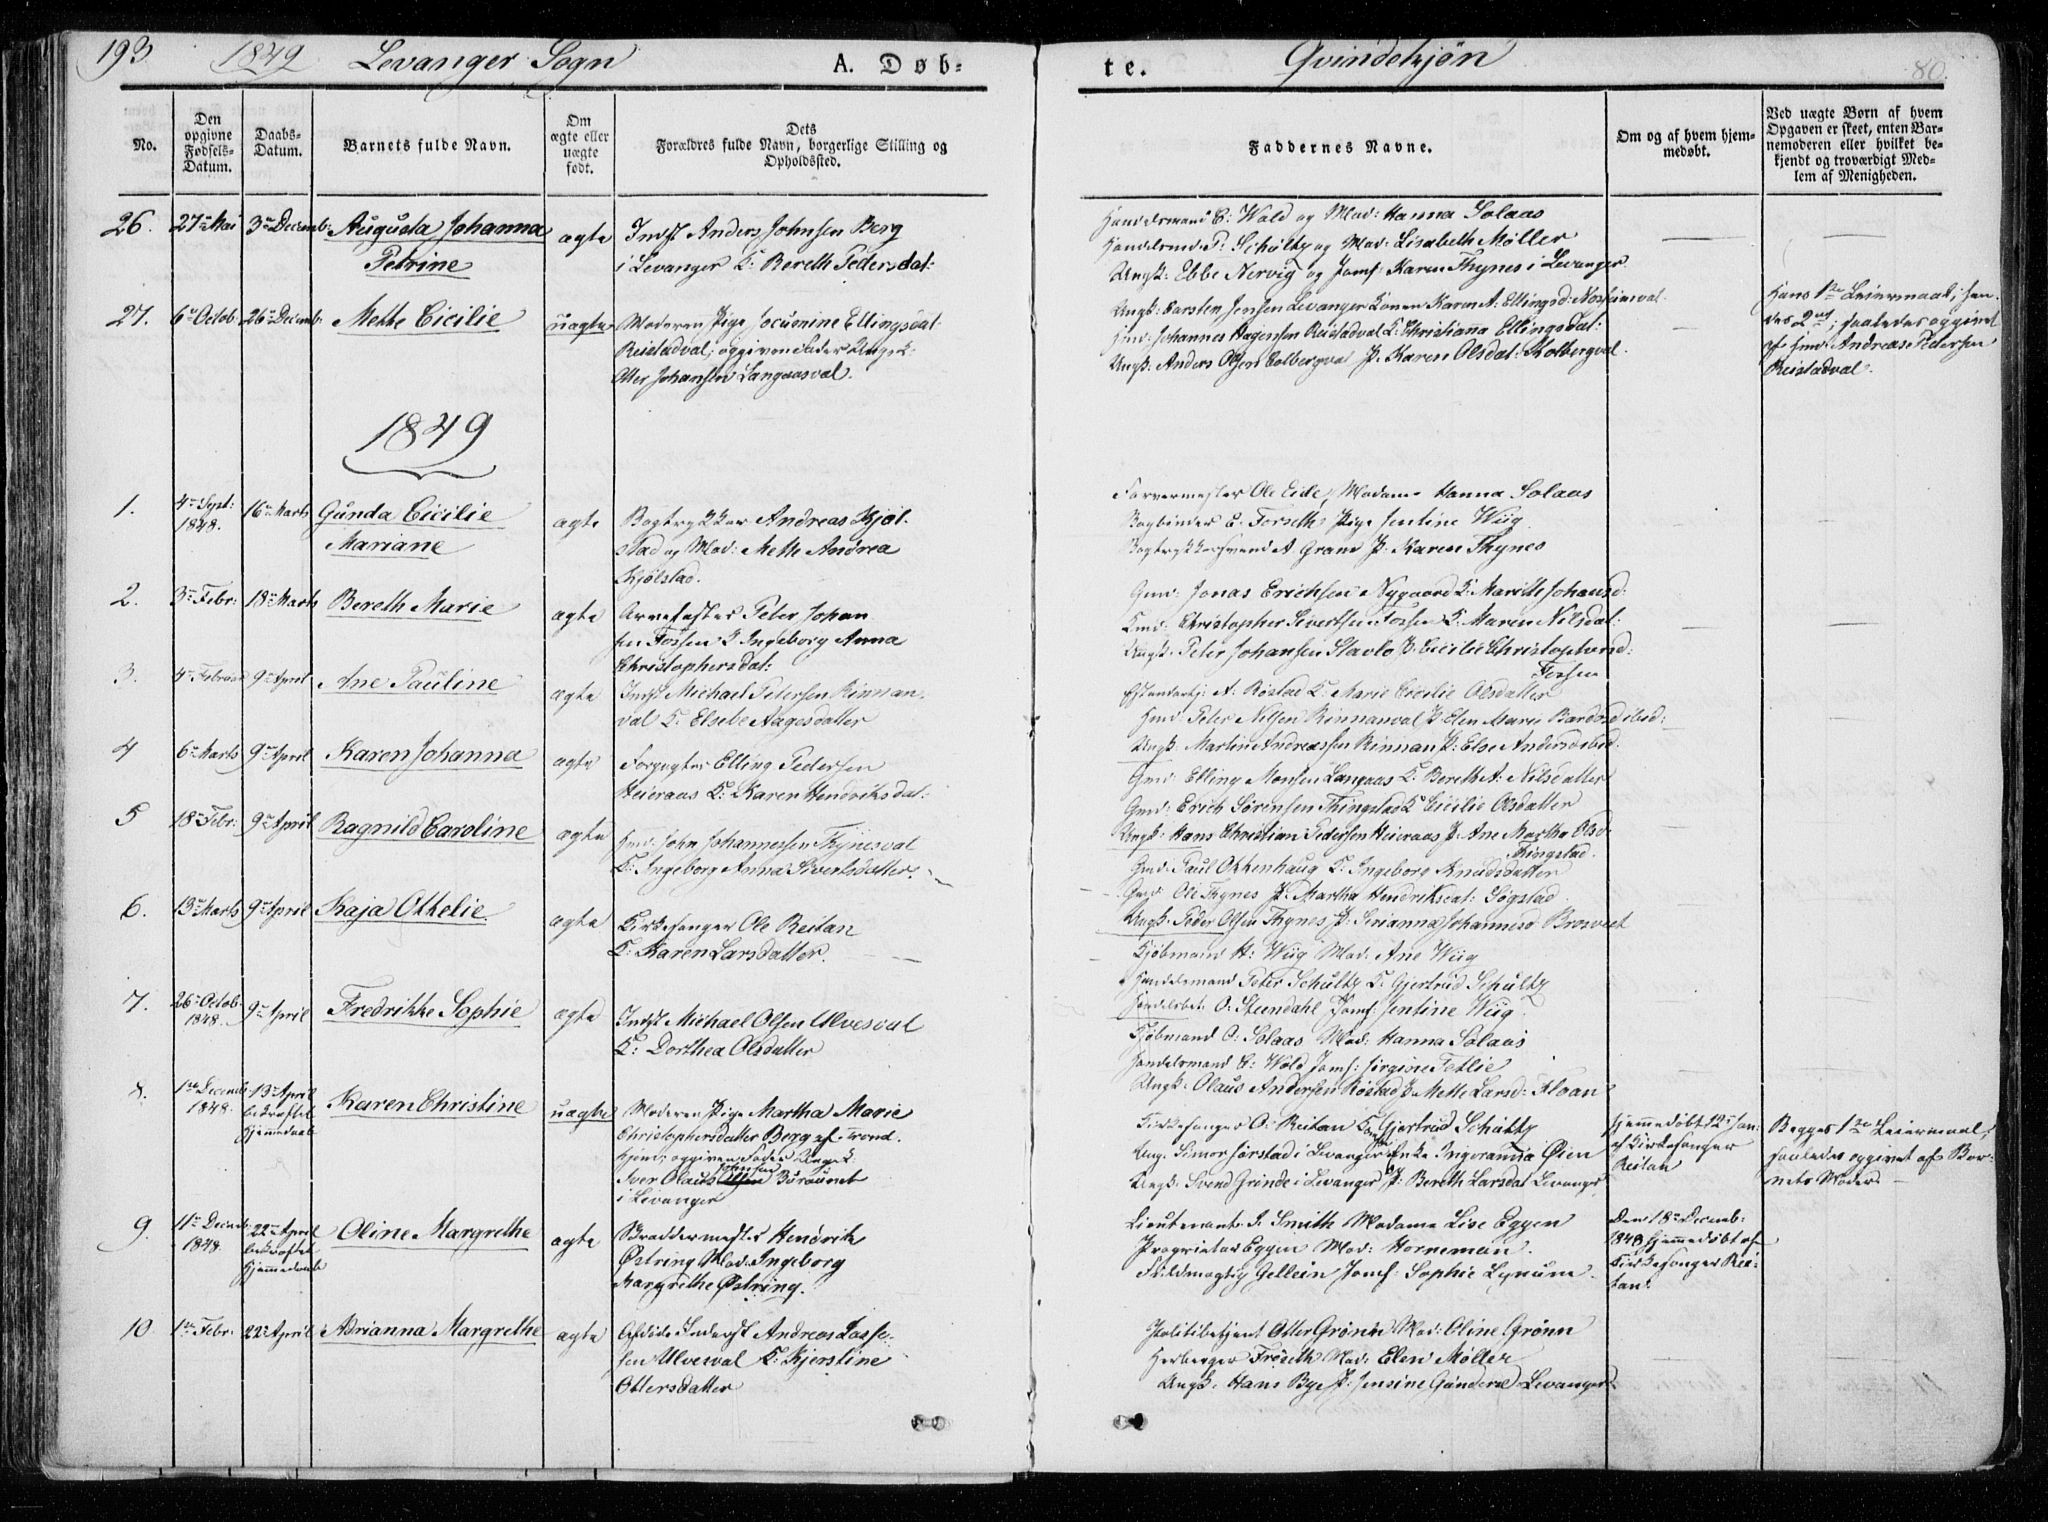 193 1849 Levanger Sogn A. Døb-
te. Qvindekjøn 80.
No.
Den opgivne Fødsels-Datum.
Daabs-Datum.
Barnets fulde Navn.
Om ægte eller uægte født.
Dets Forældres fulde Navn, borgerlige Stilling og Opholdssted.
Faddernes Navne.
Om og af hvem hjem-
medøbt.
Ved uægte Børn af hvem
Opgaven er skeet, enten Bar-
nemoderen eller hvilket be-
kjendt og troværdigt Med-
lem af Menigheden.
26. 27de Mai 3de Decemb: Augusta Johanna
Petrine
ægte
Indst Anders Johnsen Berg
i Levanger K: Bereth Pedersdat:
Handelsmand E: Wold og Mad: Hanna Solaas
Handelsmd. P: Schultz og Mad: Lisabeth Møller
Ungk: Ebbe Nervig og Jomf: Karen Thynes i Levanger
27. 6te Octob: 26de Decemb: Mette Cicilie
uægte
Moderen Pige Ellingsdat:
Reistadval; opgiven Fader Ungk:
Otter Johansen Langaasval.
Ungk: Carsten Jensen Levanger Konen Karen A: Ellingsd:
Hmd: Johannes Hagensen Reistadval K: Christiana Ellingsdat:
Ungk: Anders Olsen Kolbergval P: Karen Olsdat: Kolbergval.
Hans 1ste Leiermaal; hen-
des 2det; saaledes opgivet
af Hmd: Andreas Pedersen
Reistadval.
1849
1. 4de Sept: 1848. 16de Marts Gunda Cicilie
Mariane
ægte
Bogtrykker Andreas Kjøl-
stad og Mad: Mette Andrea
Kjølstad.
Farvermester Ole Eide, Madame Hanna Solaas
Bogbinder E. Forseth Pige Jentine Wiig
Bogtrykkersvend A Grane P. Karen Thynes
2. 3de Febr: 18de Marts Bereth Marie
ægte
Arvefæster Peter Johan-
sen Fossen K Ingeborg Anna
Christophersdat:
Gmd: Jonas Erichsen Nygaard K: Marith Johansd:
Hmd: Christopher Sivertsen Fossen K: Maren Nilsdat:
Ungk: Peter Johansen Stavlo P. Cicilie Christophersd:
Fossen
3. 4de Februar 9de April Ane Pauline
ægte
Indst Michael Petersen Rinnan-
val K: Elsebe Aagesdatter
A: Røstad K: Marie Cicilie Olsdatter
Hmd: Peter Nilsen Rinnanval P. Elen Marie Bardosd ibid:
Ungk: Martin Andreassen Rinnan P: Else Andersd ibid.
4 6te Marts 9de April Karen Johanna
ægte
Forpagter Elling Pedersen
Heieraas K: Karen Hendriksdat:
Gmd: Elling Monsen Langaas K: Bereth A: Nilsdatter
Gmd: Erich Sørensen Thingstad K Cicilie Olsdatter
Ungk: Hans Christian Pedersen Heieraas P: Ane Martha Olsd:
Thingstad.
5 18de Febr: 9de April Ragnild Caroline
ægte
Hmd: John Johannessen Thynesval
K: Ingeborg Anna Sivertsdatter.
Gmd: Paul Okkenhaug K: Ingeborg Knudsdatter
Gmd: Ole Thynes P: Martha Hendriksdat: Gøgstad
Ungk: Peder Olsen Thynes P: Serianna Johannesd Brosveet
6. 13de Marts 9de April Kaja Othelie
ægte
Kirkesanger Ole Reitan
K: Karen Larsdatter.
Kjøbmand H: Wiig Mad: Ane Wiig
Handelsmand Peter Schultz K: Gjertrud Schultz
Handelsbet: O: Steendahl Jomf: Jentine Wiig
7. 26de Octob: 1848. 9de April Fredrikke Sophie
ægte
Indst Michael Olsen Ulvesval
K: Dorthea Olsdatter
Kjøbmand O: Solaas Mad: Hanna Solaas
Handelsmand E: Wold Jomf: Jørgine Fetlie
Ungk: Olaus Andersen Røstad P. Mette Larsd: Floan
8. 1ste Decemb 1848. 13de April
bekræftet
Hjemmedaab
Karen Christine
uægte
Moderen Pige Martha Marie
Christophersdatter Berg af Trond-
hjem; opgiven Fader Ungk:
Iver Olaus Johnsen
i Levanger
Kirkesanger O: Reitan Gjertrud Schultz
Ung. Simon Jørstad i Levanger Enke Ingeranna Øien
Ungk: Svend Grinde i Levanger P: Bereth Larsdat Levanger
Hjemmedøbt 12te Jan:
af Kirkesanger
Reitan
Begges 1ste Leiermaal;
saaledes opgivet af Bar-
nets Moder
9. 11te Decemb 1848. 22de April
bekræftet
Hjemmedaab
Oline Margrethe
ægte
Hendrik
Østring Mad: Ingeborg
Margrethe Østring.
Lieutenant J. Smith Madame Lise Eggen
Proprietær Eggen Mad: Horneman.
Fuldmægtig Gellein Jomf: Sophie Lynum
Den 18de Decemb:
1848 hjemmedøbt af
Kirkesanger Rei-
tan.
10. 1ste Febr: 22de April Adrianna Margrethe
ægte
Afdøde Inderst Andreas Lasse-
sen Ulvesval K: Kjerstine
Ottersdatter
Politibetjent Otter Grønn Mad: Oline Grønn
Herberger Frøseth Mad: Elen Møller
Ungk: Hans Bye P: Jensine Gundersd Levanger.